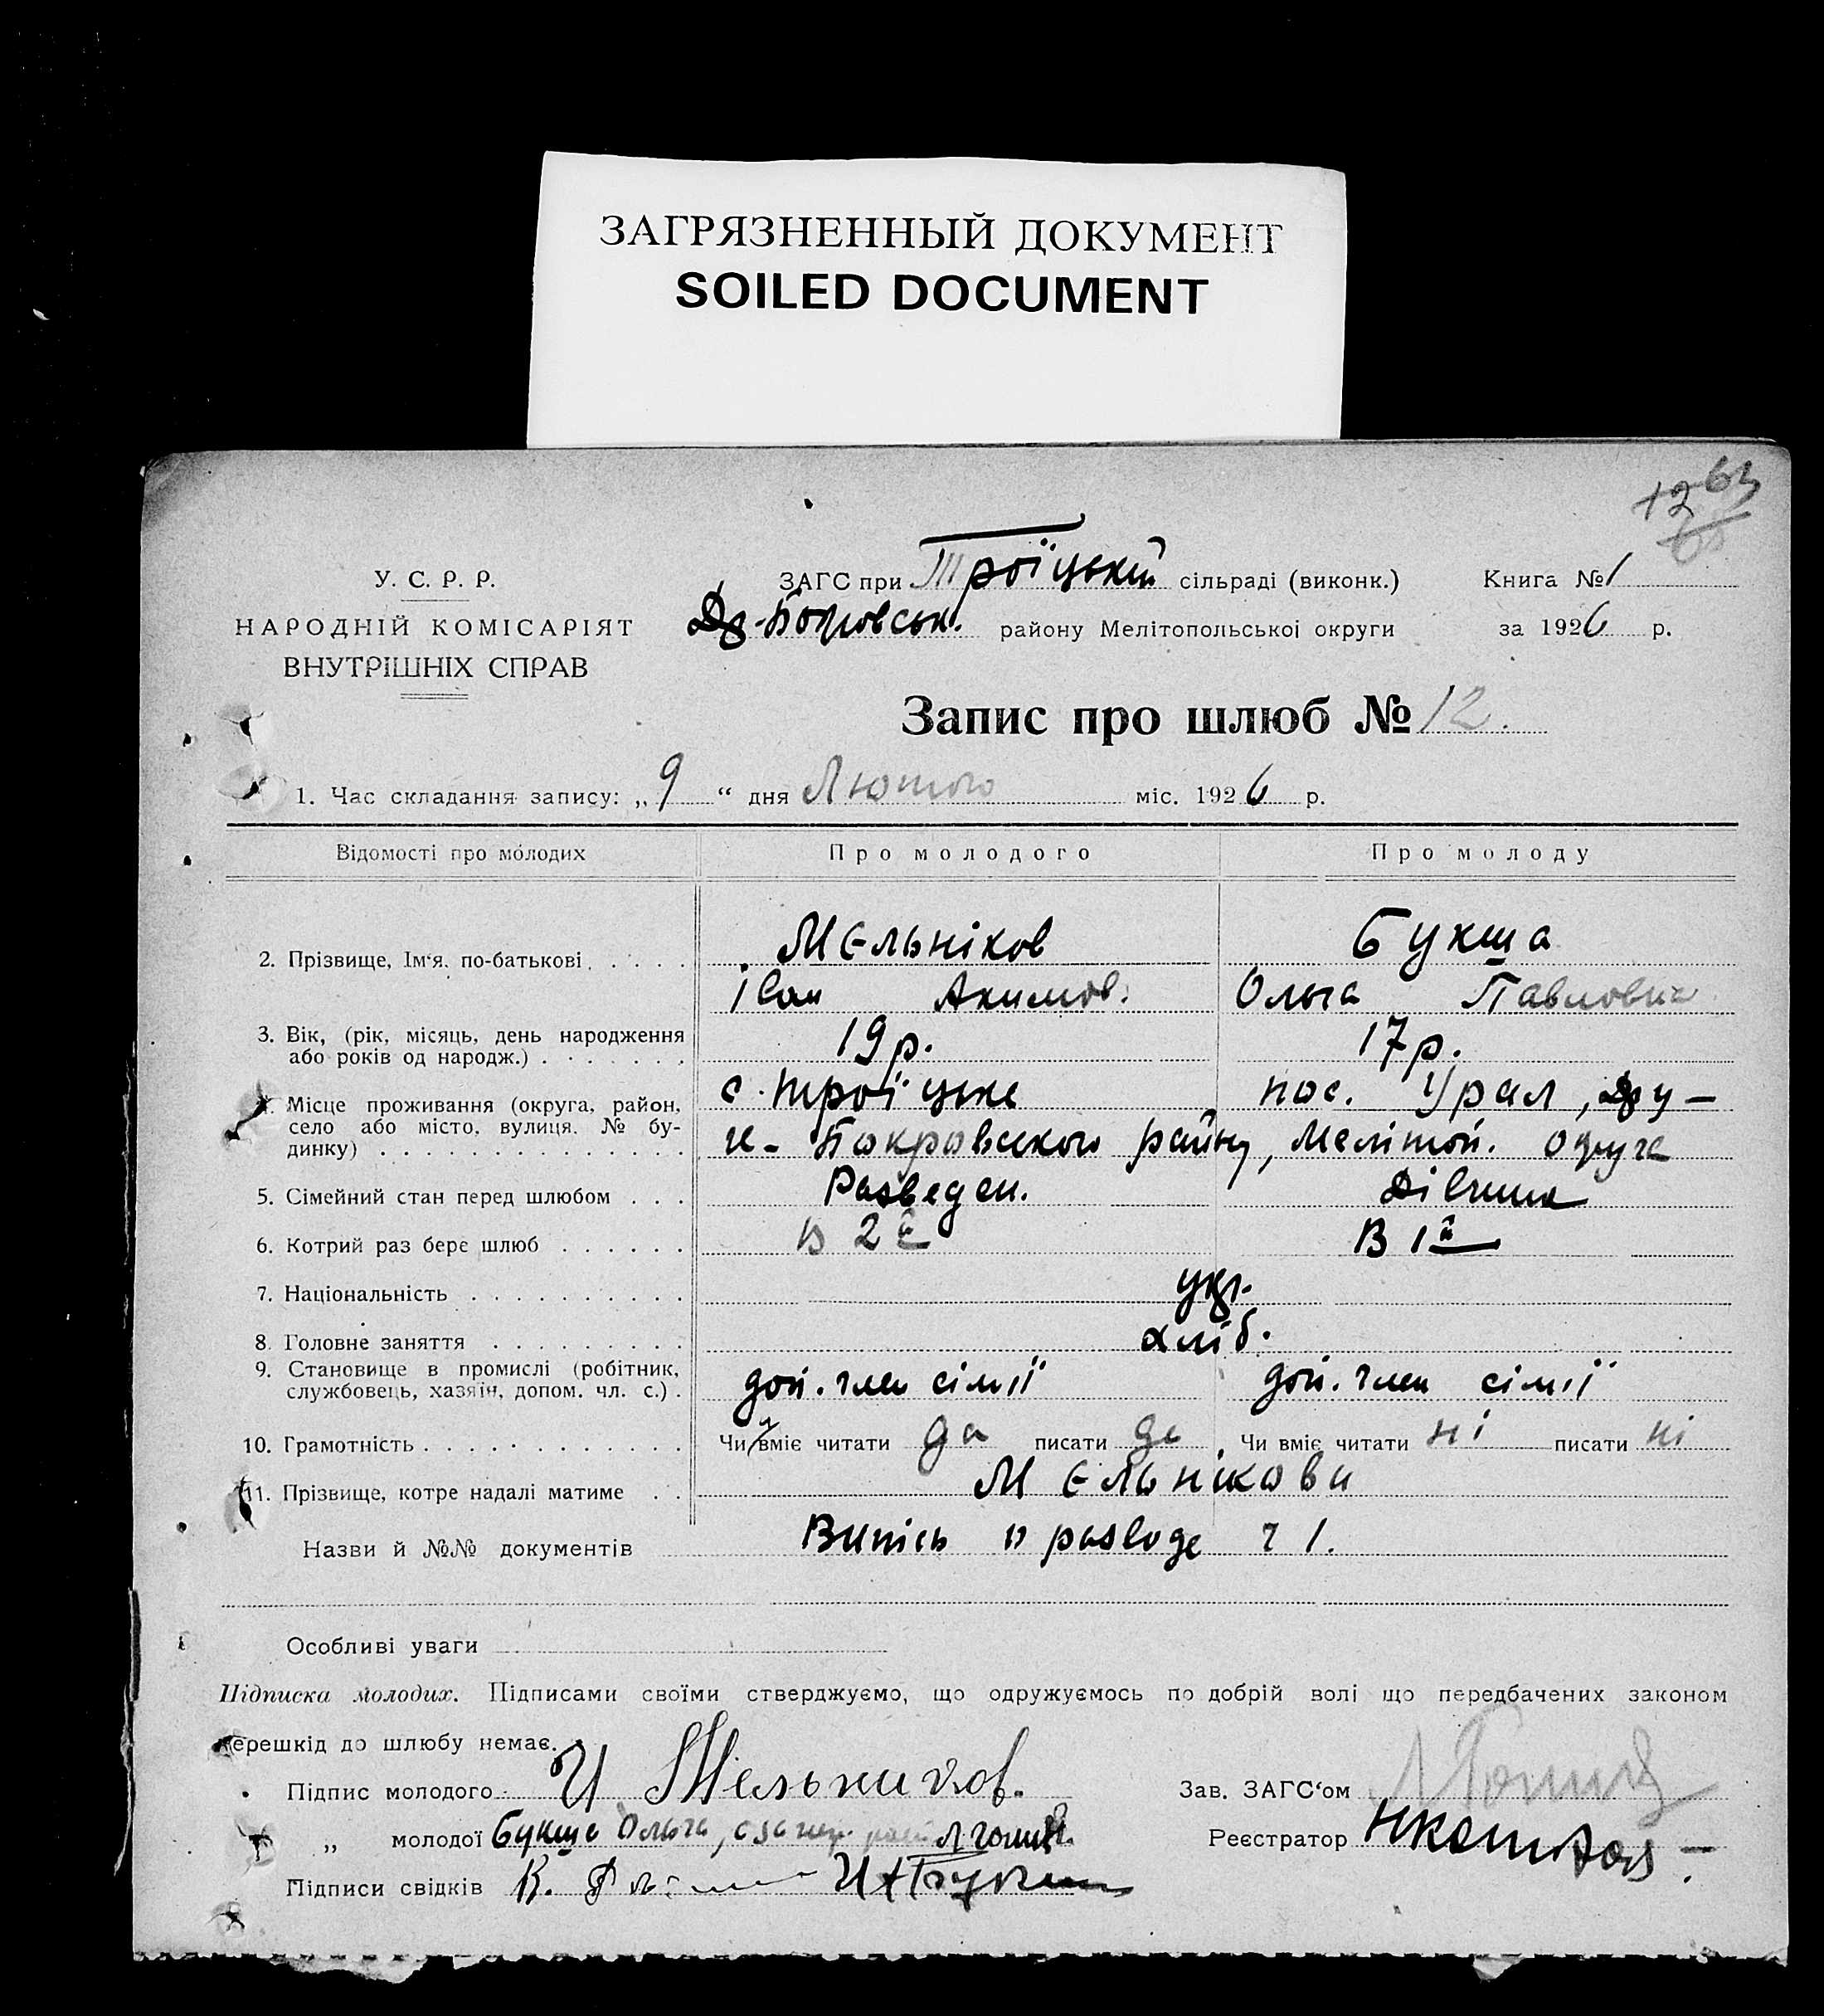 ЗАГРЯЗНЕННЫЙ ДОКУМЕНТ
SOILED DOCUMENT
12 63
У. С. Р. Р.
НАРОДНІЙ КОМІСАРІЯТ
ВНУТРІШНІХ СПРАВ
ЗАГС при Троїцькій сільраді (виконк.)
Книга № 1
району Мелітопольської округи
за 1926 р.
Запис про шлюб № 12.
1. Час складання запису: „9“ дня Лютого міс. 1926 р.
Відомості про молодих
Про молодого
Про молоду
2. Прізвище, Ім‘я, по-батькові
Мєльніков
Букша
Іван Акимов.
Ольга Павловна
3. Вік, (рік, місяць, день народження
або років од народж.)
19 р.
17 р.
4. Місце проживання (округа, район,
село або місто, вулиця, № бу-
динку)
с. Троїцьке
пос. Урал, Дру-
Покровського району, Мелітоп. округа
5. Сімейний стан перед шлюбом
Разведен.
Дівчина
6. Котрий раз бере шлюб
в 2й
В 1й
7. Національність
укр.
8. Головне заняття
хліб.
9. Становище в промислі (робітник,
службовець, хазяїн, допом. чл. с.)
доп. член сімії
доп. член сімії
10. Грамотність
Чи вміє читати да писати да
Чи вміє читати ні писати ні
11. Прізвище, котре надалі матиме
Мєльнікови
Назви й №№ документів
Випісь о разводе ч 1.
Особливі уваги
Підписка молодих. Підписами своїми стверджуємо, що одружуємось по добрій волі що передбачених законом
перешкід до шлюбу немає.
Підпис молодого И Мельников.
Зав. ЗАГС‘ом
„ молодої Букша Ольга,
Реєстратор
Підписи свідків